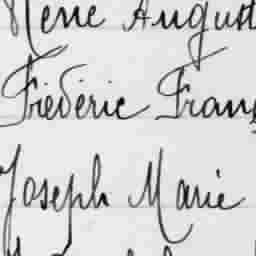 René August
Frédéric Franç
Joseph Marie